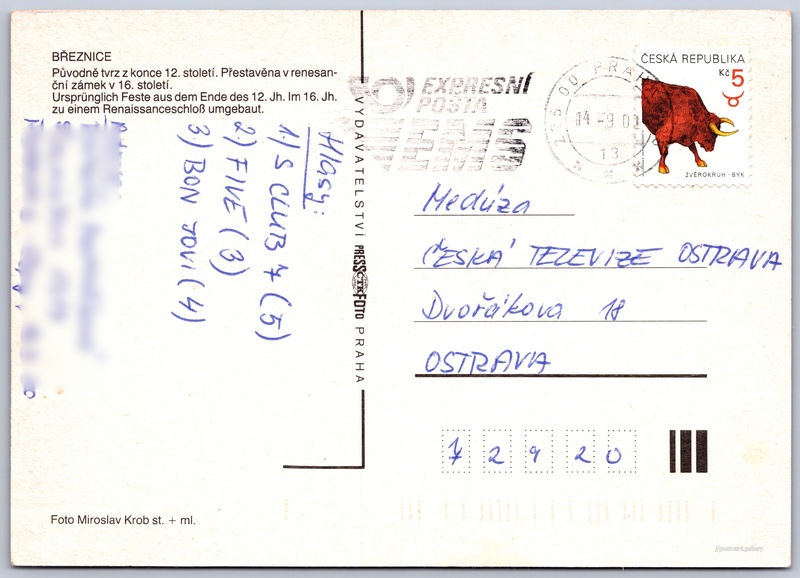 BŘEZNICE
Původně tvrz z konce 12. století. Přestavěna v renesan-
ční zámek v 16. století.
Ursprünglich Feste aus dem Ende des 12. Jh. Im 16. Jh.
zu einem Renaissanceschloß umgebaut.
Hlasy:
1) S CLUB 7 (5)
2) FIVE (3)
3) BON JOVI (4)
VYDAVATELSTVÍ PRESSFOTO PRAHA
ČTK
EXPRESNÍ
POŠTA
EMS
PRAHA
13
ČESKÁ REPUBLIKA
Kč 5
ZVĚROKRUH · BÝK
Medúza
ČESKÁ TELEVIZE OSTRAVA
Dvořákova 18
OSTRAVA
7 2 9 2 0
Foto Miroslav Krob st. + ml.
postcard.gallery